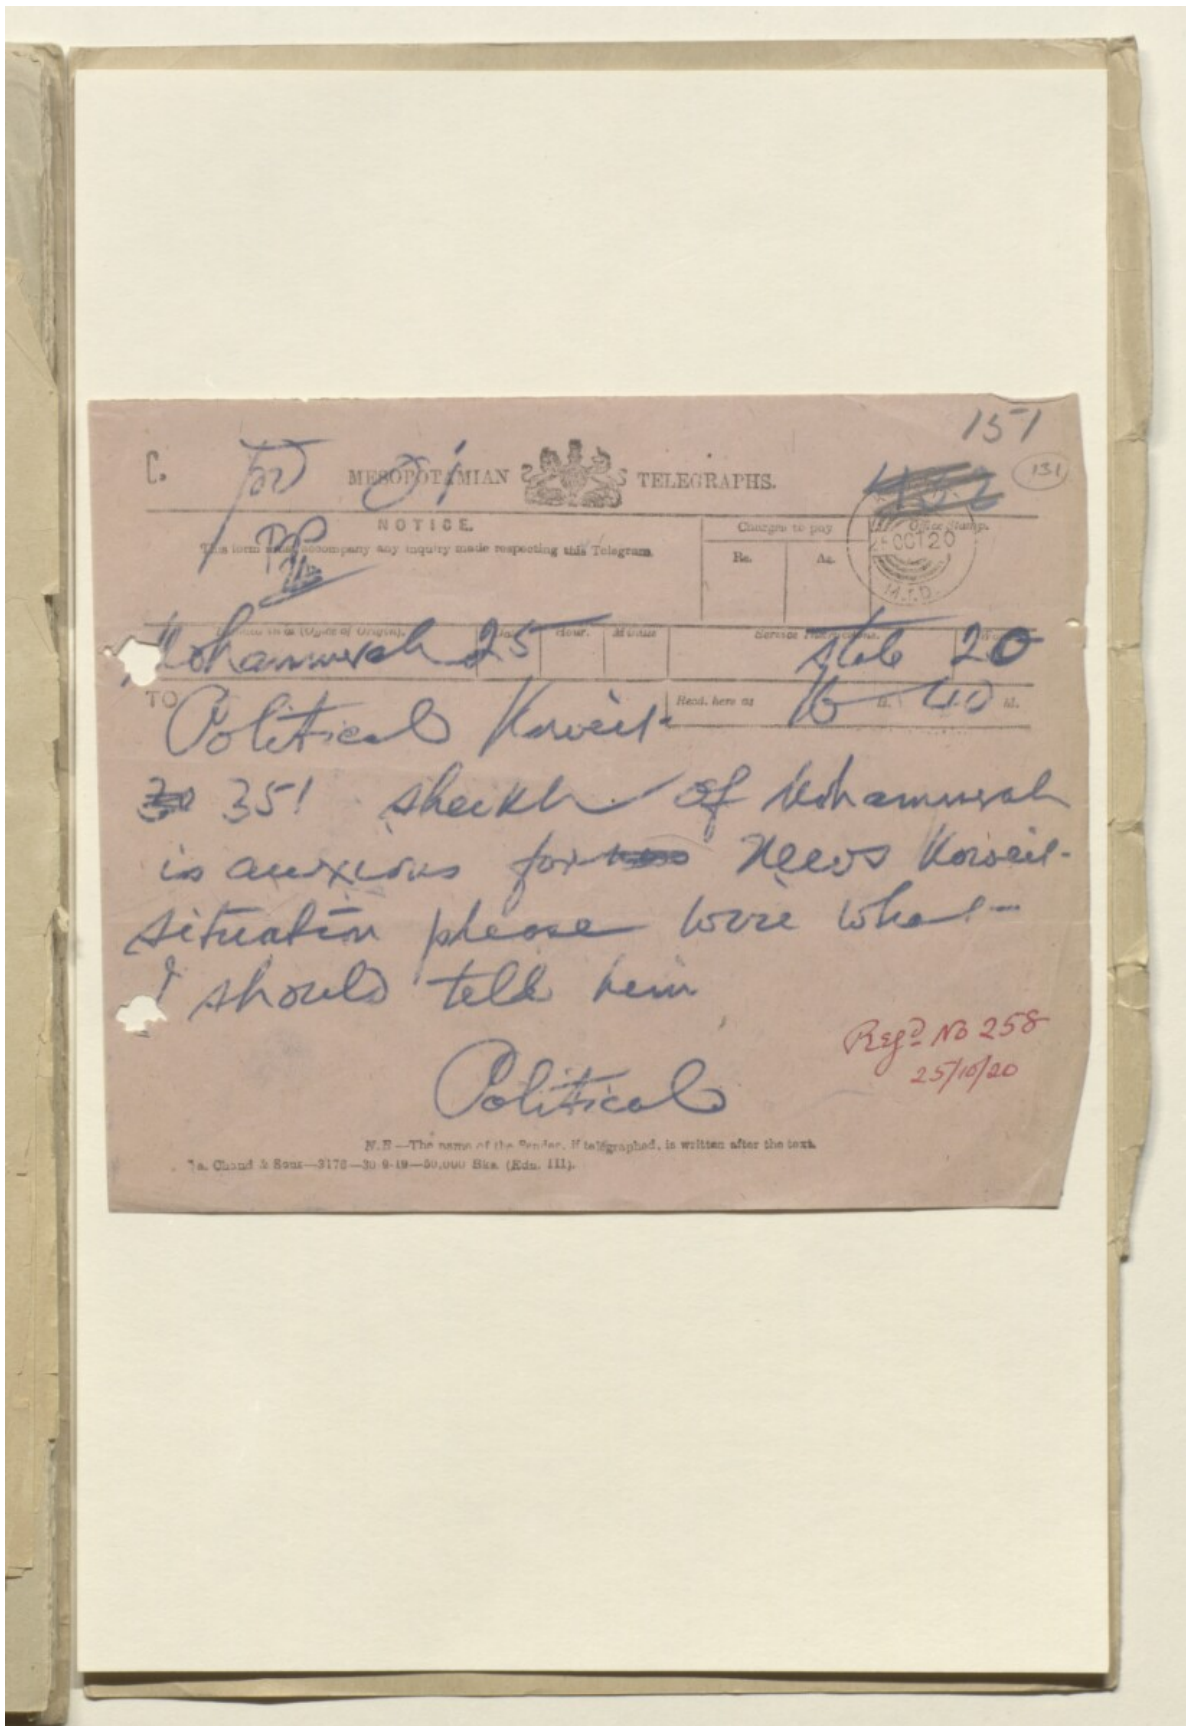 151
C.
MESOPOTAMIAN TELEGRAPHS.
131
NOTICE.
This form must accompany any inquiry made respecting this Telegram.
Charges to pay
Rs. As.
Office Stamp.
OCT 20
M.T.D.
(Office of Origin). Hour. Minute Service Instructions.
Mohammerah 25 state 20
TO Political Koweit
Recd. here at 16 H. 40 M.
351 Sheikh of Mohammerah
is anxious for news Koweit
situation please wire what
I should tell him
Political
Regd No 258
25/10/20
N.B.—The name of the Sender, if telegraphed, is written after the text.
Chand & Sons—3176—30-9-19—50,000 Bks. (Edn. III).